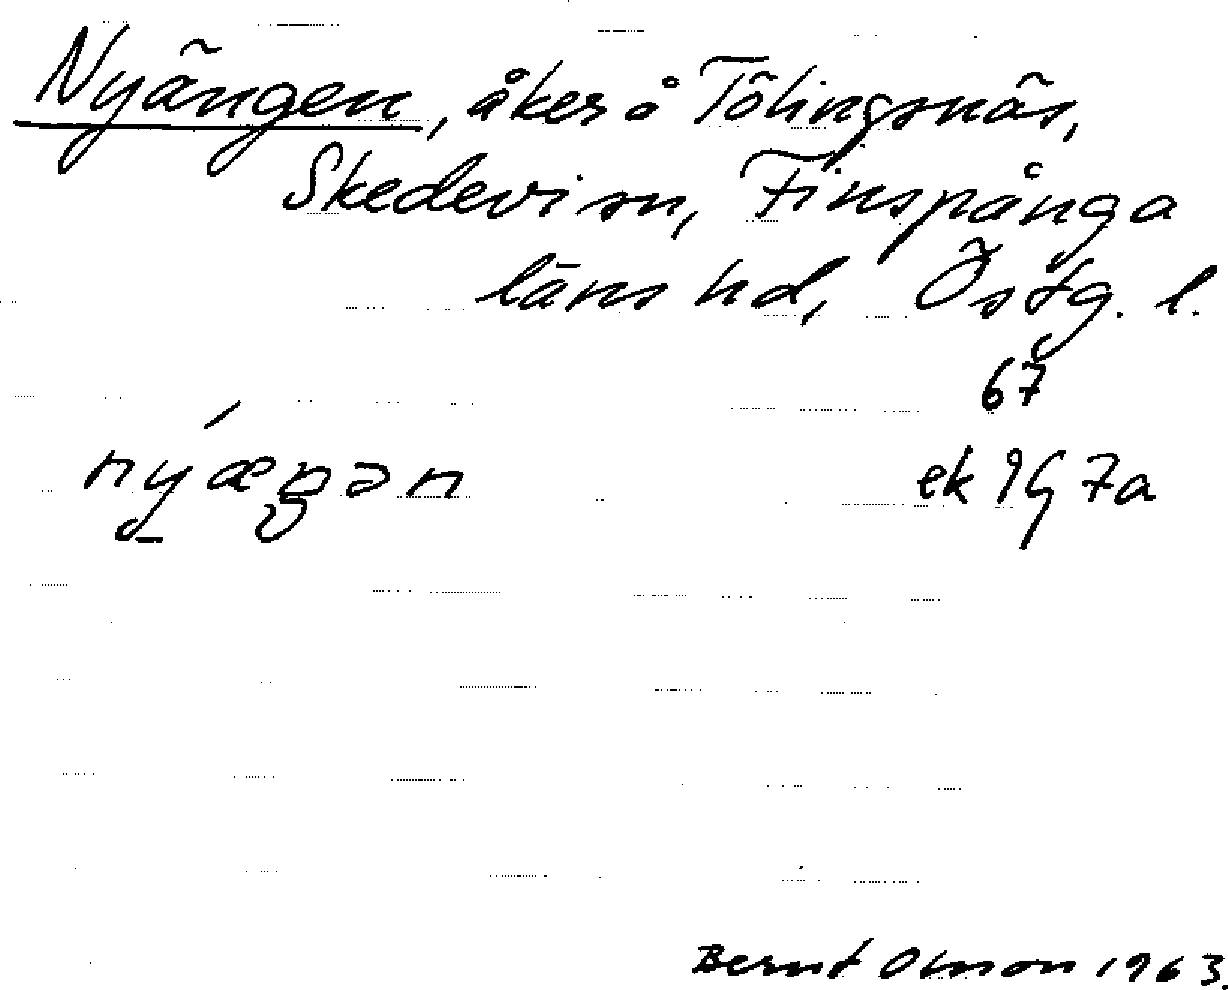 Nyängen, åker å Tölingsnäs,
Skedevi sn, Finspånga
läns hd, Östg. l.
67
nýæŋən
ek 9G 7a
Bernt Olmon 1963.